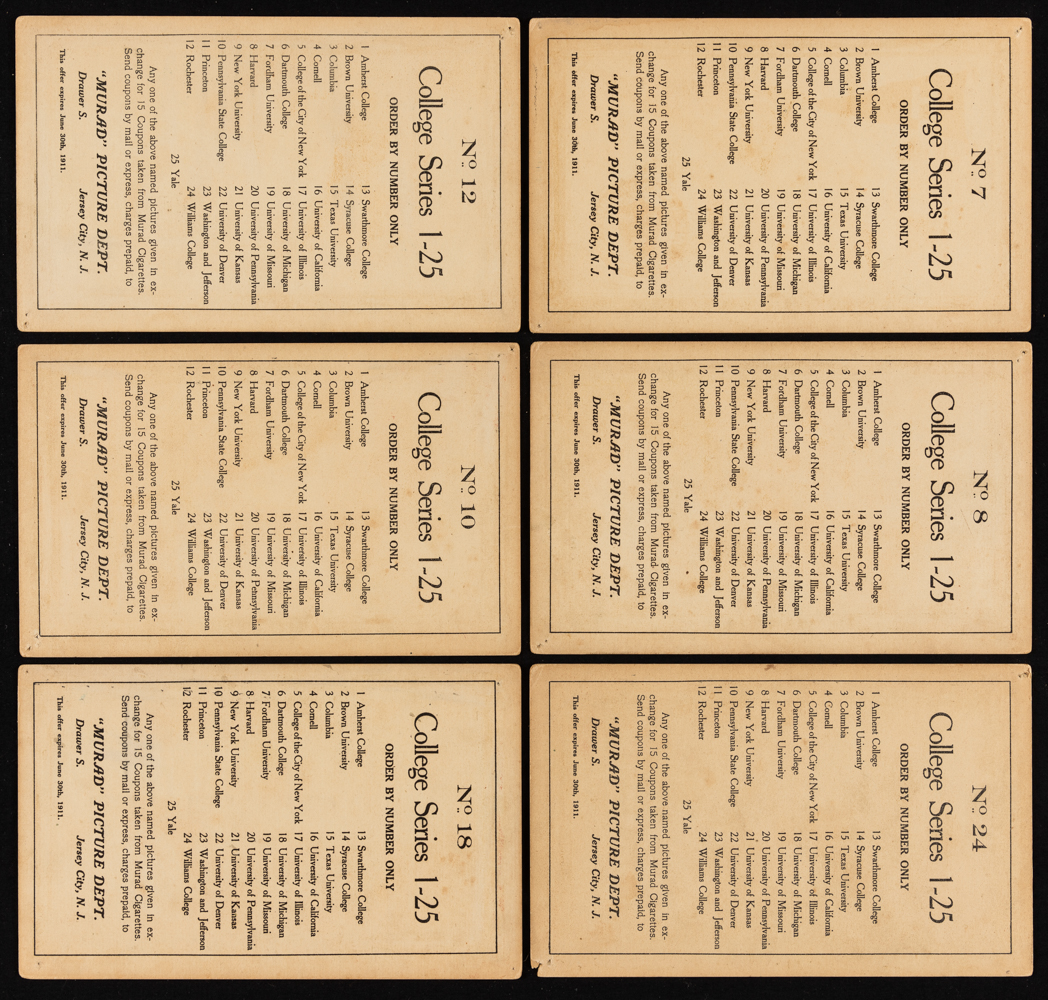 No. 12
College Series 1-25
ORDER BY NUMBER ONLY
1 Amherst College 13 Swarthmore College
2 Brown University 14 Syracuse College
3 Columbia 15 Texas University
4 Cornell 16 University of California
5 College of the City of New York 17 University of Illinois
6 Dartmouth College 18 University of Michigan
7 Fordham University 19 University of Missouri
8 Harvard 20 University of Pennsylvania
9 New York University 21 University of Kansas
10 Pennsylvania State College 22 University of Denver
11 Princeton 23 Washington and Jefferson
12 Rochester 24 Williams College
25 Yale
Any one of the above named pictures given in ex-
change for 15 Coupons taken from Murad Cigarettes.
Send coupons by mail or express, charges prepaid, to
"MURAD" PICTURE DEPT.
Drawer S. Jersey City, N. J.
This offer expires June 30th, 1911.
No. 7
College Series 1-25
ORDER BY NUMBER ONLY
1 Amherst College 13 Swarthmore College
2 Brown University 14 Syracuse College
3 Columbia 15 Texas University
4 Cornell 16 University of California
5 College of the City of New York 17 University of Illinois
6 Dartmouth College 18 University of Michigan
7 Fordham University 19 University of Missouri
8 Harvard 20 University of Pennsylvania
9 New York University 21 University of Kansas
10 Pennsylvania State College 22 University of Denver
11 Princeton 23 Washington and Jefferson
12 Rochester 24 Williams College
25 Yale
Any one of the above named pictures given in ex-
change for 15 Coupons taken from Murad Cigarettes.
Send coupons by mail or express, charges prepaid, to
"MURAD" PICTURE DEPT.
Drawer S. Jersey City, N. J.
This offer expires June 30th, 1911.
No. 10
College Series 1-25
ORDER BY NUMBER ONLY
1 Amherst College 13 Swarthmore College
2 Brown University 14 Syracuse College
3 Columbia 15 Texas University
4 Cornell 16 University of California
5 College of the City of New York 17 University of Illinois
6 Dartmouth College 18 University of Michigan
7 Fordham University 19 University of Missouri
8 Harvard 20 University of Pennsylvania
9 New York University 21 University of Kansas
10 Pennsylvania State College 22 University of Denver
11 Princeton 23 Washington and Jefferson
12 Rochester 24 Williams College
25 Yale
Any one of the above named pictures given in ex-
change for 15 Coupons taken from Murad Cigarettes.
Send coupons by mail or express, charges prepaid, to
"MURAD" PICTURE DEPT.
Drawer S. Jersey City, N. J.
This offer expires June 30th, 1911.
No. 8
College Series 1-25
ORDER BY NUMBER ONLY
1 Amherst College 13 Swarthmore College
2 Brown University 14 Syracuse College
3 Columbia 15 Texas University
4 Cornell 16 University of California
5 College of the City of New York 17 University of Illinois
6 Dartmouth College 18 University of Michigan
7 Fordham University 19 University of Missouri
8 Harvard 20 University of Pennsylvania
9 New York University 21 University of Kansas
10 Pennsylvania State College 22 University of Denver
11 Princeton 23 Washington and Jefferson
12 Rochester 24 Williams College
25 Yale
Any one of the above named pictures given in ex-
change for 15 Coupons taken from Murad Cigarettes.
Send coupons by mail or express, charges prepaid, to
"MURAD" PICTURE DEPT.
Drawer S. Jersey City, N. J.
This offer expires June 30th, 1911.
No. 18
College Series 1-25
ORDER BY NUMBER ONLY
1 Amherst College 13 Swarthmore College
2 Brown University 14 Syracuse College
3 Columbia 15 Texas University
4 Cornell 16 University of California
5 College of the City of New York 17 University of Illinois
6 Dartmouth College 18 University of Michigan
7 Fordham University 19 University of Missouri
8 Harvard 20 University of Pennsylvania
9 New York University 21 University of Kansas
10 Pennsylvania State College 22 University of Denver
11 Princeton 23 Washington and Jefferson
12 Rochester 24 Williams College
25 Yale
Any one of the above named pictures given in ex-
change for 15 Coupons taken from Murad Cigarettes.
Send coupons by mail or express, charges prepaid, to
"MURAD" PICTURE DEPT.
Drawer S. Jersey City, N. J.
This offer expires June 30th, 1911.
No. 24
College Series 1-25
ORDER BY NUMBER ONLY
1 Amherst College 13 Swarthmore College
2 Brown University 14 Syracuse College
3 Columbia 15 Texas University
4 Cornell 16 University of California
5 College of the City of New York 17 University of Illinois
6 Dartmouth College 18 University of Michigan
7 Fordham University 19 University of Missouri
8 Harvard 20 University of Pennsylvania
9 New York University 21 University of Kansas
10 Pennsylvania State College 22 University of Denver
11 Princeton 23 Washington and Jefferson
12 Rochester 24 Williams College
25 Yale
Any one of the above named pictures given in ex-
change for 15 Coupons taken from Murad Cigarettes.
Send coupons by mail or express, charges prepaid, to
"MURAD" PICTURE DEPT.
Drawer S. Jersey City, N. J.
This offer expires June 30th, 1911.